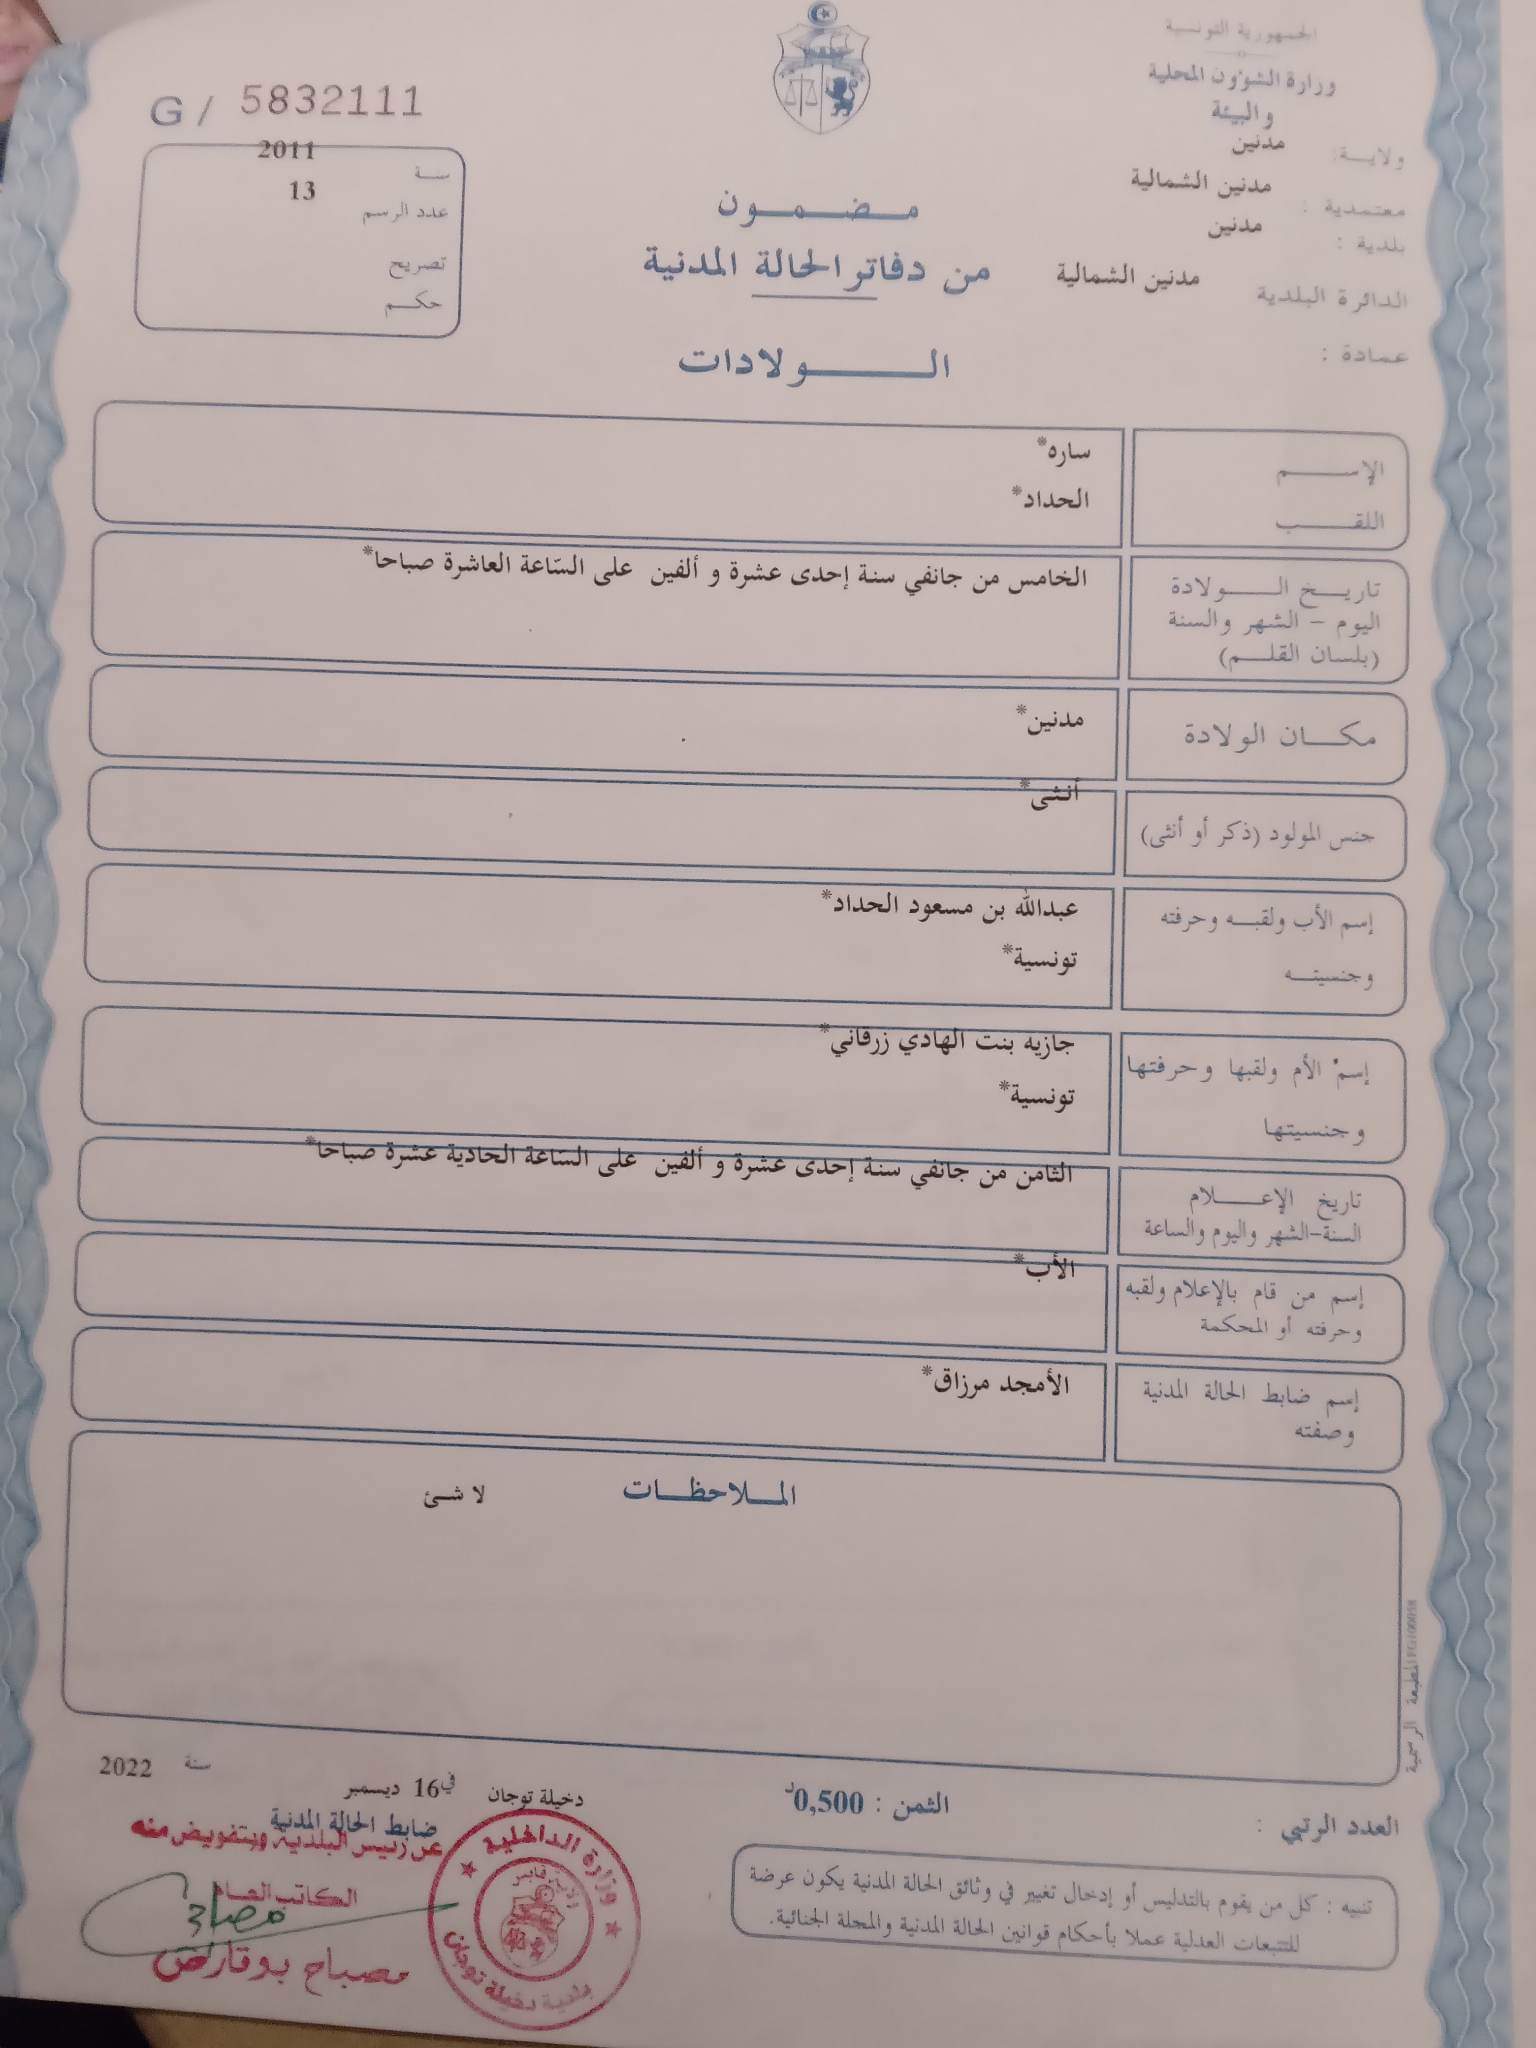 الجمهورية التونسية
وزارة الشؤون المحلية
و البيئة
ولاية: مدنين
معتمدية : مدنين الشمالية
بلدية : مدنين
الدائرة البلدية مدنين الشمالية
عمادة :
مضمون
من دفاتر الحالة المدنية
الولادات
G / 5832111
سنة 2011
عدد الرسم 13
تصريح
حكم
الإسم ساره*
اللقب الحداد*
تاريخ الولادة الخامس من جانفي سنة إحدى عشرة و ألفين على السّاعة العاشرة صباحا*
اليوم - الشهر والسنة
(بلسان القلم)
مكان الولادة مدنين*
جنس المولود (ذكر أو أنثى) أنثى*
إسم الأب ولقبه وحرفته عبدالله بن مسعود الحداد*
وجنسيته تونسية*
إسم الأم ولقبها وحرفتها جازيه بنت الهادي زرقاني*
وجنسيتها تونسية*
تاريخ الإعلام الثامن من جانفي سنة إحدى عشرة و ألفين على السّاعة الحادية عشرة صباحا*
السنة-الشهر واليوم والساعة
إسم من قام بالإعلام ولقبه الأب*
وحرفته أو المحكمة
إسم ضابط الحالة المدنية الأمجد مرزاق*
وصفته
الملاحظات لا شئ
المطبعة الرسمية
العدد الرتبي :
الثمن : 0,500د
دخيلة توجان في 16 ديسمبر سنة 2022
ضابط الحالة المدنية
عن رئيس البلدية وبتفويض منه
الكاتب العام
مصباح
مصباح بوقارص
وزارة الداخلية
ولاية قابس
بلدية دخيلة توجان
تنبيه : كل من يقوم بالتدليس أو إدخال تغيير في وثائق الحالة المدنية يكون عرضة
للتتبعات العدلية عملا بأحكام قوانين الحالة المدنية والمجلة الجنائية.